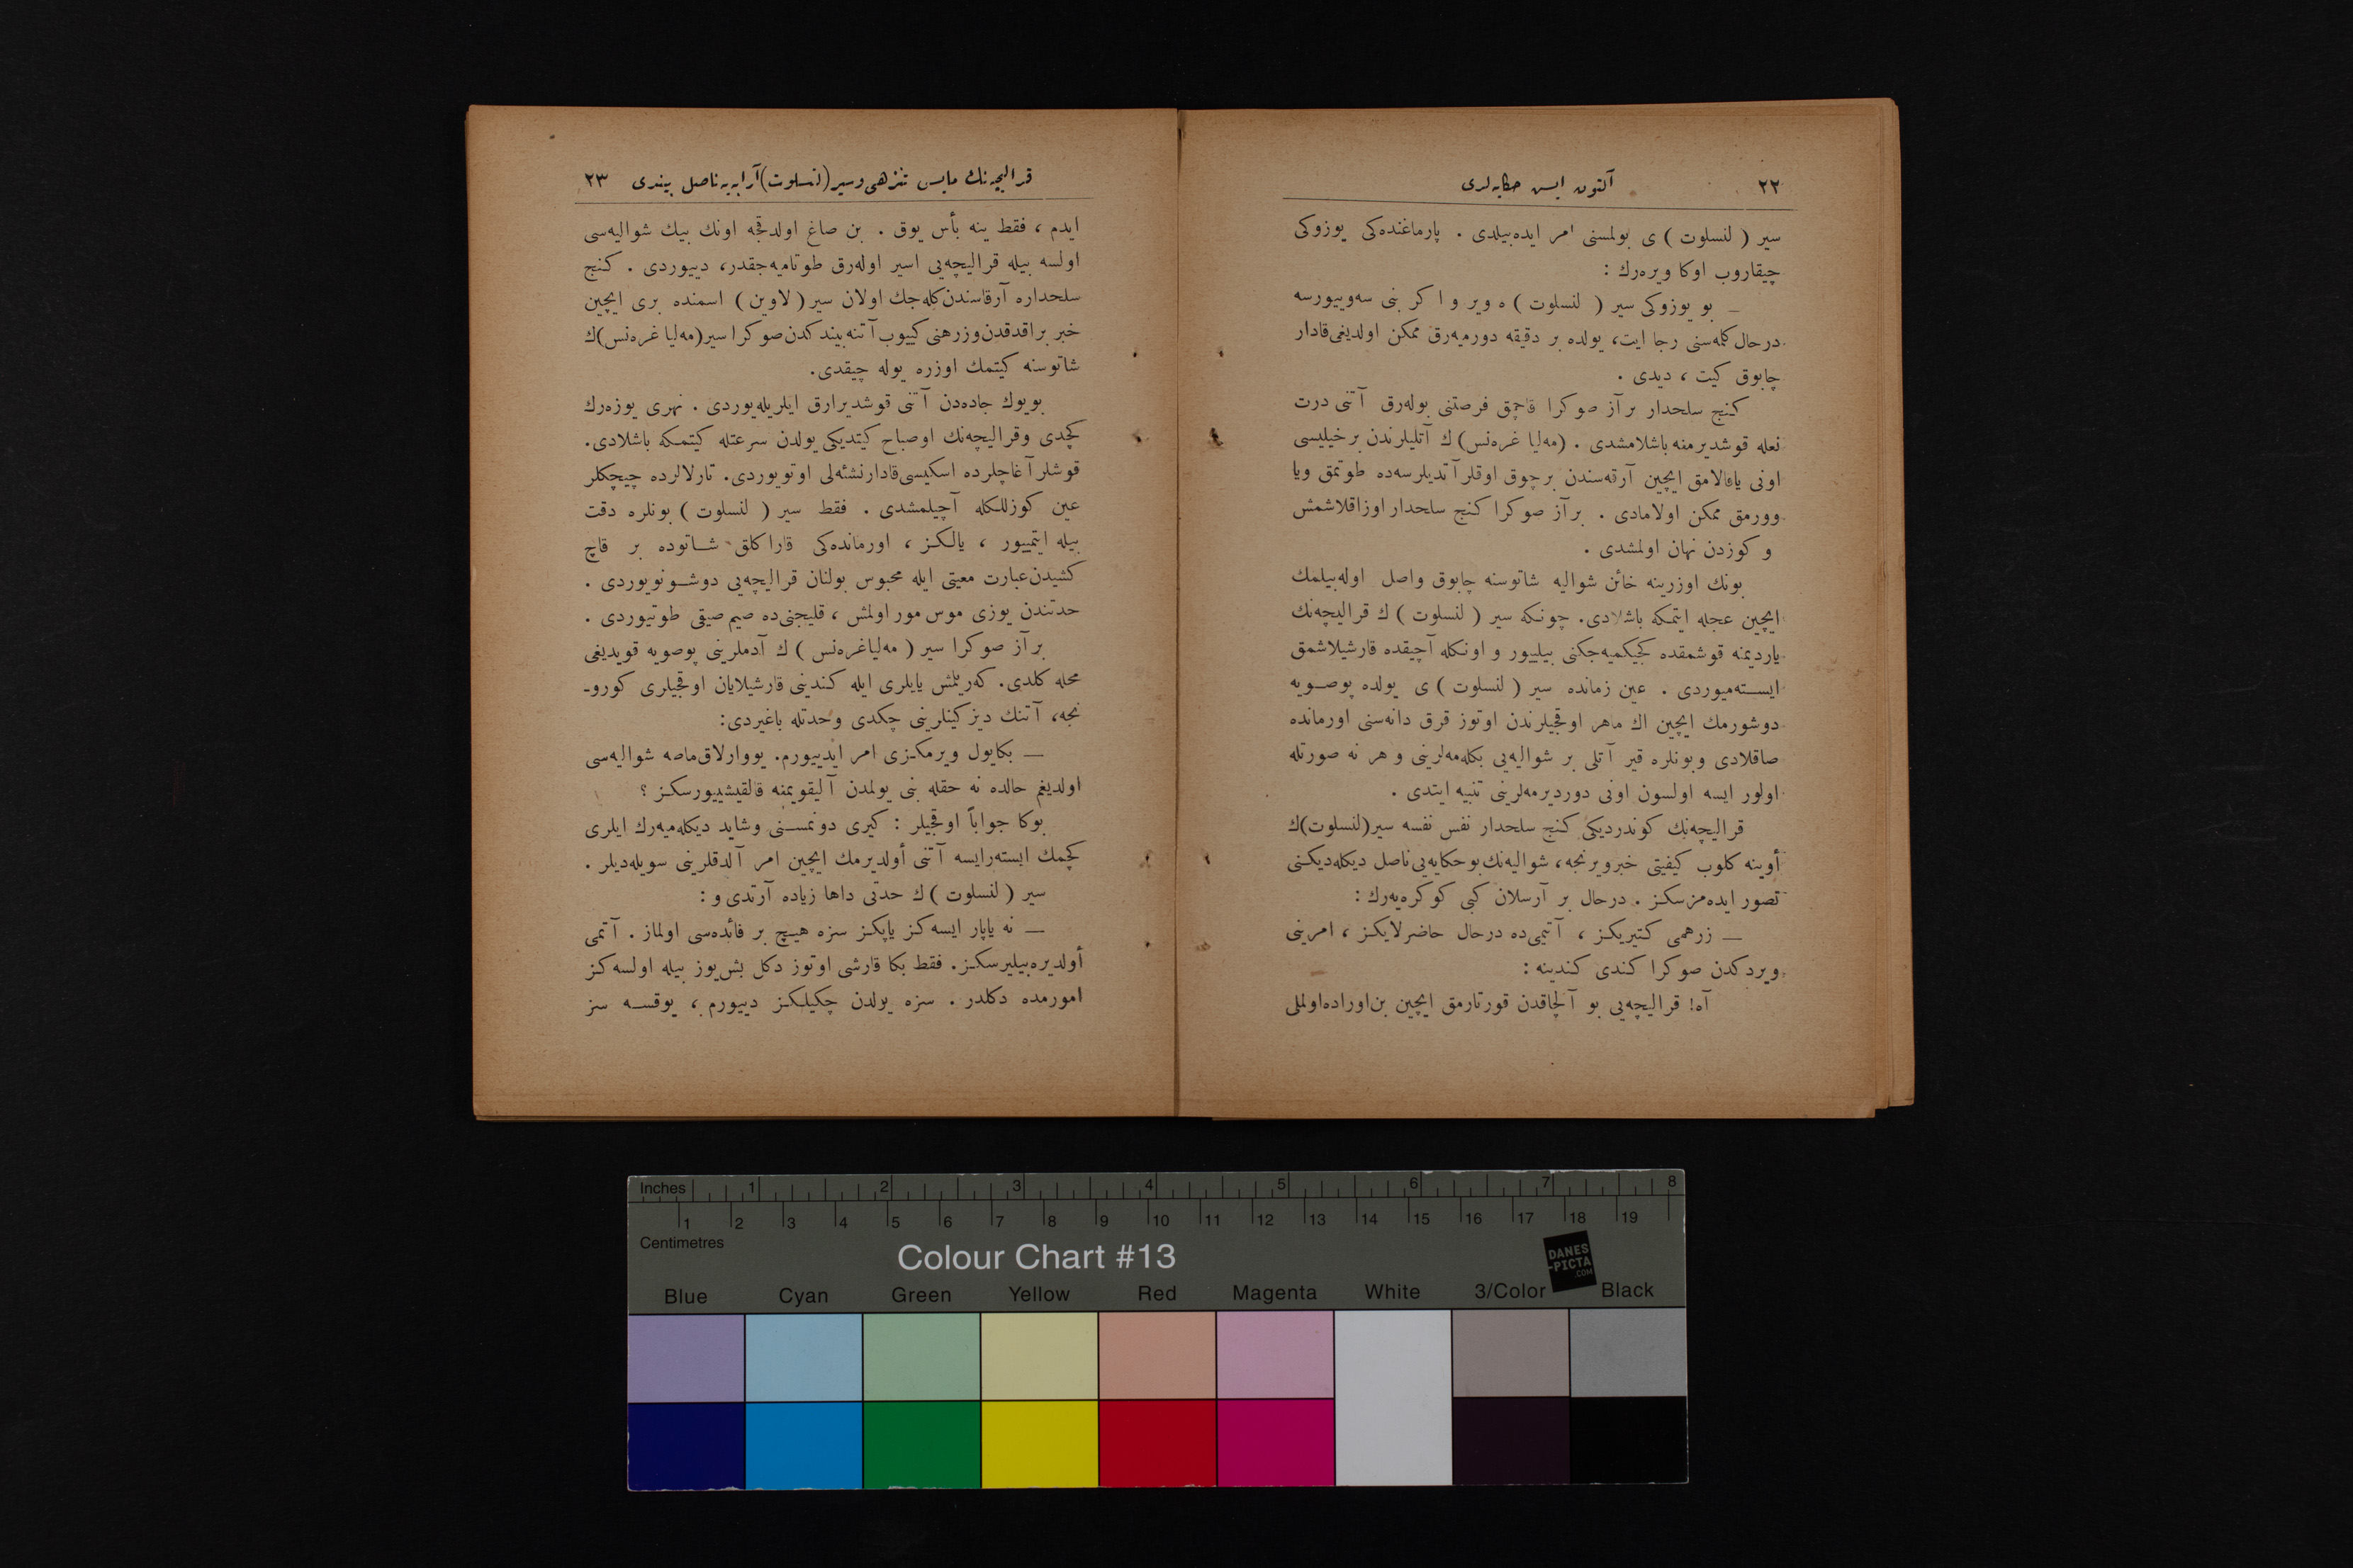 ٢٢ آلتون ایس حکایه‌لری
سیر ( لنسلوت ) ی بولمسنی امر ایده‌بیلدی . پارماغنده‌کی یوزوکی
چیقاروب اوکا ویره‌رك :
ــ بو یوزوکی سیر ( لنسلوت ) ه ویر و ا کر بنی سه‌وییورسه
درحال کلمه‌سنی رجا ایت، یولده بر دقیقه دورمیه‌رق ممکن اولدیغی قادار
چابوق کیت ، دیدی .
کنج سلحدار بر آز صوکرا قاچمق فرصتنی بوله‌رق آتنی درت
نعله قوشدیرمنه باشلامشدی . (مه‌لیا غره‌نس) ك آتلیلرندن بر خیلیسی
اونی یاقالامق ایچین آرقه‌سندن بر چوق اوقلر آتدیلرسه‌ده طوتمق ویا
وورمق ممکن اولامادی . بر آز صوکرا کنج سلحدار اوزاقلاشمش
و کوزدن نهان اولمشدی .
بونك اوزرینه خائن شوالیه شاتوسنه چابوق واصل اوله‌بیلمك
ایچین عجله ایتمکه باشلادی. چونکه سیر ( لنسلوت ) ك قرالیچه‌نك
یاردیمنه قوشمقده کجیکمیه‌جکنی بیلییور و اونکله آچیقده قارشیلاشمق
ایسته‌میوردی . عین زمانده سیر ( لنسلوت ) ی یولده پوصویه
دوشورمك ایچین اك ماهر اوقجیلرندن اوتوز قرق دانه‌سنی اورمانده
صاقلادی وبونلره قیر آتلی بر شوالیه‌یی بکله‌مه‌لرینی و هر نه صورتله
اولور ایسه اولسون اونی دوردیرمه‌لرینی تنبیه ایتدی .
قرالیچه‌نك کوندردیکی کنج سلحدار نفس نفسه سیر (لنسلوت) ك
أوینه کلوب کیفیتی خبرویرنجه، شوالیه‌نك بو حکایه‌یی ناصل دیکله‌دیکنی
تصور ایده‌مزسکز . درحال بر آرسلان کبی کوکره‌یه‌رك :
ــ زرهمی کتیریکز ، آتیمی‌ده درحال حاضرلایکز ، امرینی
ویردکدن صوکرا کندی کندینه :
آه! قرالیچه‌یی بو آلچاقدن قورتارمق ایچین بن اوراده اولملی
قرالیچه‌نك مایس تنزهی وسیر (لنسلوت) آرابه‌یه ناصل بیندی ٢٣
ایدم ، فقط ینه بأس یوق . بن صاغ اولدقجه اونك بیك شوالیه‌سی
اولسه بیله قرالیچه‌یی اسیر اوله‌رق طوتامیه‌جقدر، دییوردی . کنج
سلحداره آرقاسندن کله‌جك اولان سیر ( لاوین ) اسمنده بری ایچین
خبر براقدقدن و زرهنی کییوب آتنه بیندکدن صوکرا سیر (مه‌لیا غره‌نس) ك
شاتوسنه کیتمك اوزره یوله چیقدی.
بویوك جاده‌دن آتنی قوشدیرارق ایلریله‌یوردی . نهری یوزه‌رك
کچدی وقرالیچه‌نك اوصباح کیتدیکی یولدن سرعتله کیتمکه باشلادی.
قوشلر آغاچلرده اسکیسی قادار نشئه‌لی اوتویوردی. تارلالرده چیچکلر
عین کوزللکله آچیلمشدی . فقط سیر ( لنسلوت ) بونلره دقت
بیله ایتمییور ، یالکز ، اورمانده‌کی قاراکلق شاتوده بر قاچ
کشیدن عبارت معیتی ایله محبوس بولنان قرالیچه‌یی دوشونویوردی .
حدتندن یوزی موس مور اولمش ، قلیجنی‌ده صیم صیقی طوتیوردی .
بر آز صوکرا سیر ( مه‌لیاغره‌نس ) ك آدملرینی پوصویه قویدیغی
محله کلدی. که‌ریلمش یایلری ایله کندینی قارشیلایان اوقجیلری کورو-
نجه، آتنك دیزکینلرینی چکدی وحدتله باغیردی:
ــ بکا یول ویرمکزی امر ایدییورم. یووارلاق ماصه شوالیه‌سی
اولدیغم حالده نه حقله بنی یولمدن آلیقویمنه قالقیشییورسکز ؟
بوکا جواباً اوقجیلر : کیری دونمسنی وشاید دیکله‌میه‌رك ایلری
کچمك ایسته‌رایسه آتنی أولدیرمك ایچین امر آلدقلرینی سویله‌دیلر .
سیر ( لنسلوت ) ك حدتی داها زیاده آرتدی و :
ــ نه یاپار ایسه‌کز یاپکز سزه هیچ بر فائده‌سی اولماز . آتمی
أولدیره‌بیلیرسکز. فقط بکا قارشی اوتوز دکل بش یوز بیله اولسه‌کز
امورمده دکلدر . سزه یولدن چکیلکز دییورم ، یوقسه سز
Inches 1 2 3 4 5 6 7 8
1 2 3 4 5 6 7 8 9 10 11 12 13 14 15 16 17 18 19
Centimetres
Colour Chart #13
DANES
-PICTA
.COM
Blue Cyan Green Yellow Red Magenta White 3/Color Black